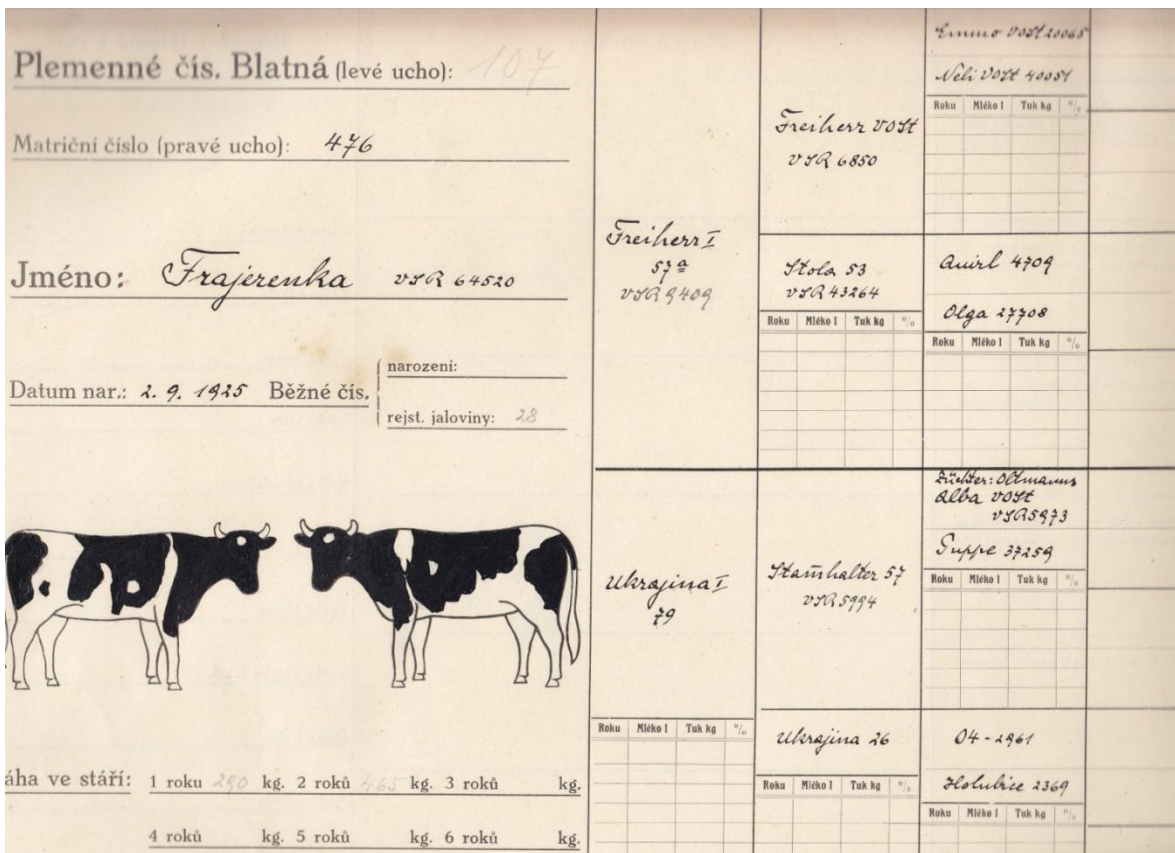 Plemenné čís. Blatná (levé ucho): 107
Matriční číslo (pravé ucho): 476
Jméno: Frajerenka VSR 64520
Datum nar.: 2. 9. 1925 Běžné čís.
narození:
rejst. jaloviny: 28
áha ve stáří: 1 roku 290 kg. 2 roků 465 kg. 3 roků kg.
4 roků kg. 5 roků kg. 6 roků kg.
Freiherr I
57a
VSR 9409
Ukrajina I
79
Roku Mléko l Tuk kg %
Freiherr VOSt
VSR 6850
Stola 53
VSR 43264
Roku Mléko l Tuk kg %
Stam̄halter 57
VSR 5994
Ukrajina 26
Roku Mléko l Tuk kg %
Emmo VOSt 20065
Neli VOSt 40051
Roku Mléko l Tuk kg %
Quirl 4709
Olga 27708
Roku Mléko l Tuk kg %
Züchter: Oltmanns
Alba VOSt
VSR 5973
Puppe 37259
Roku Mléko l Tuk kg %
04-2961
Holubice 2369
Roku Mléko l Tuk kg %